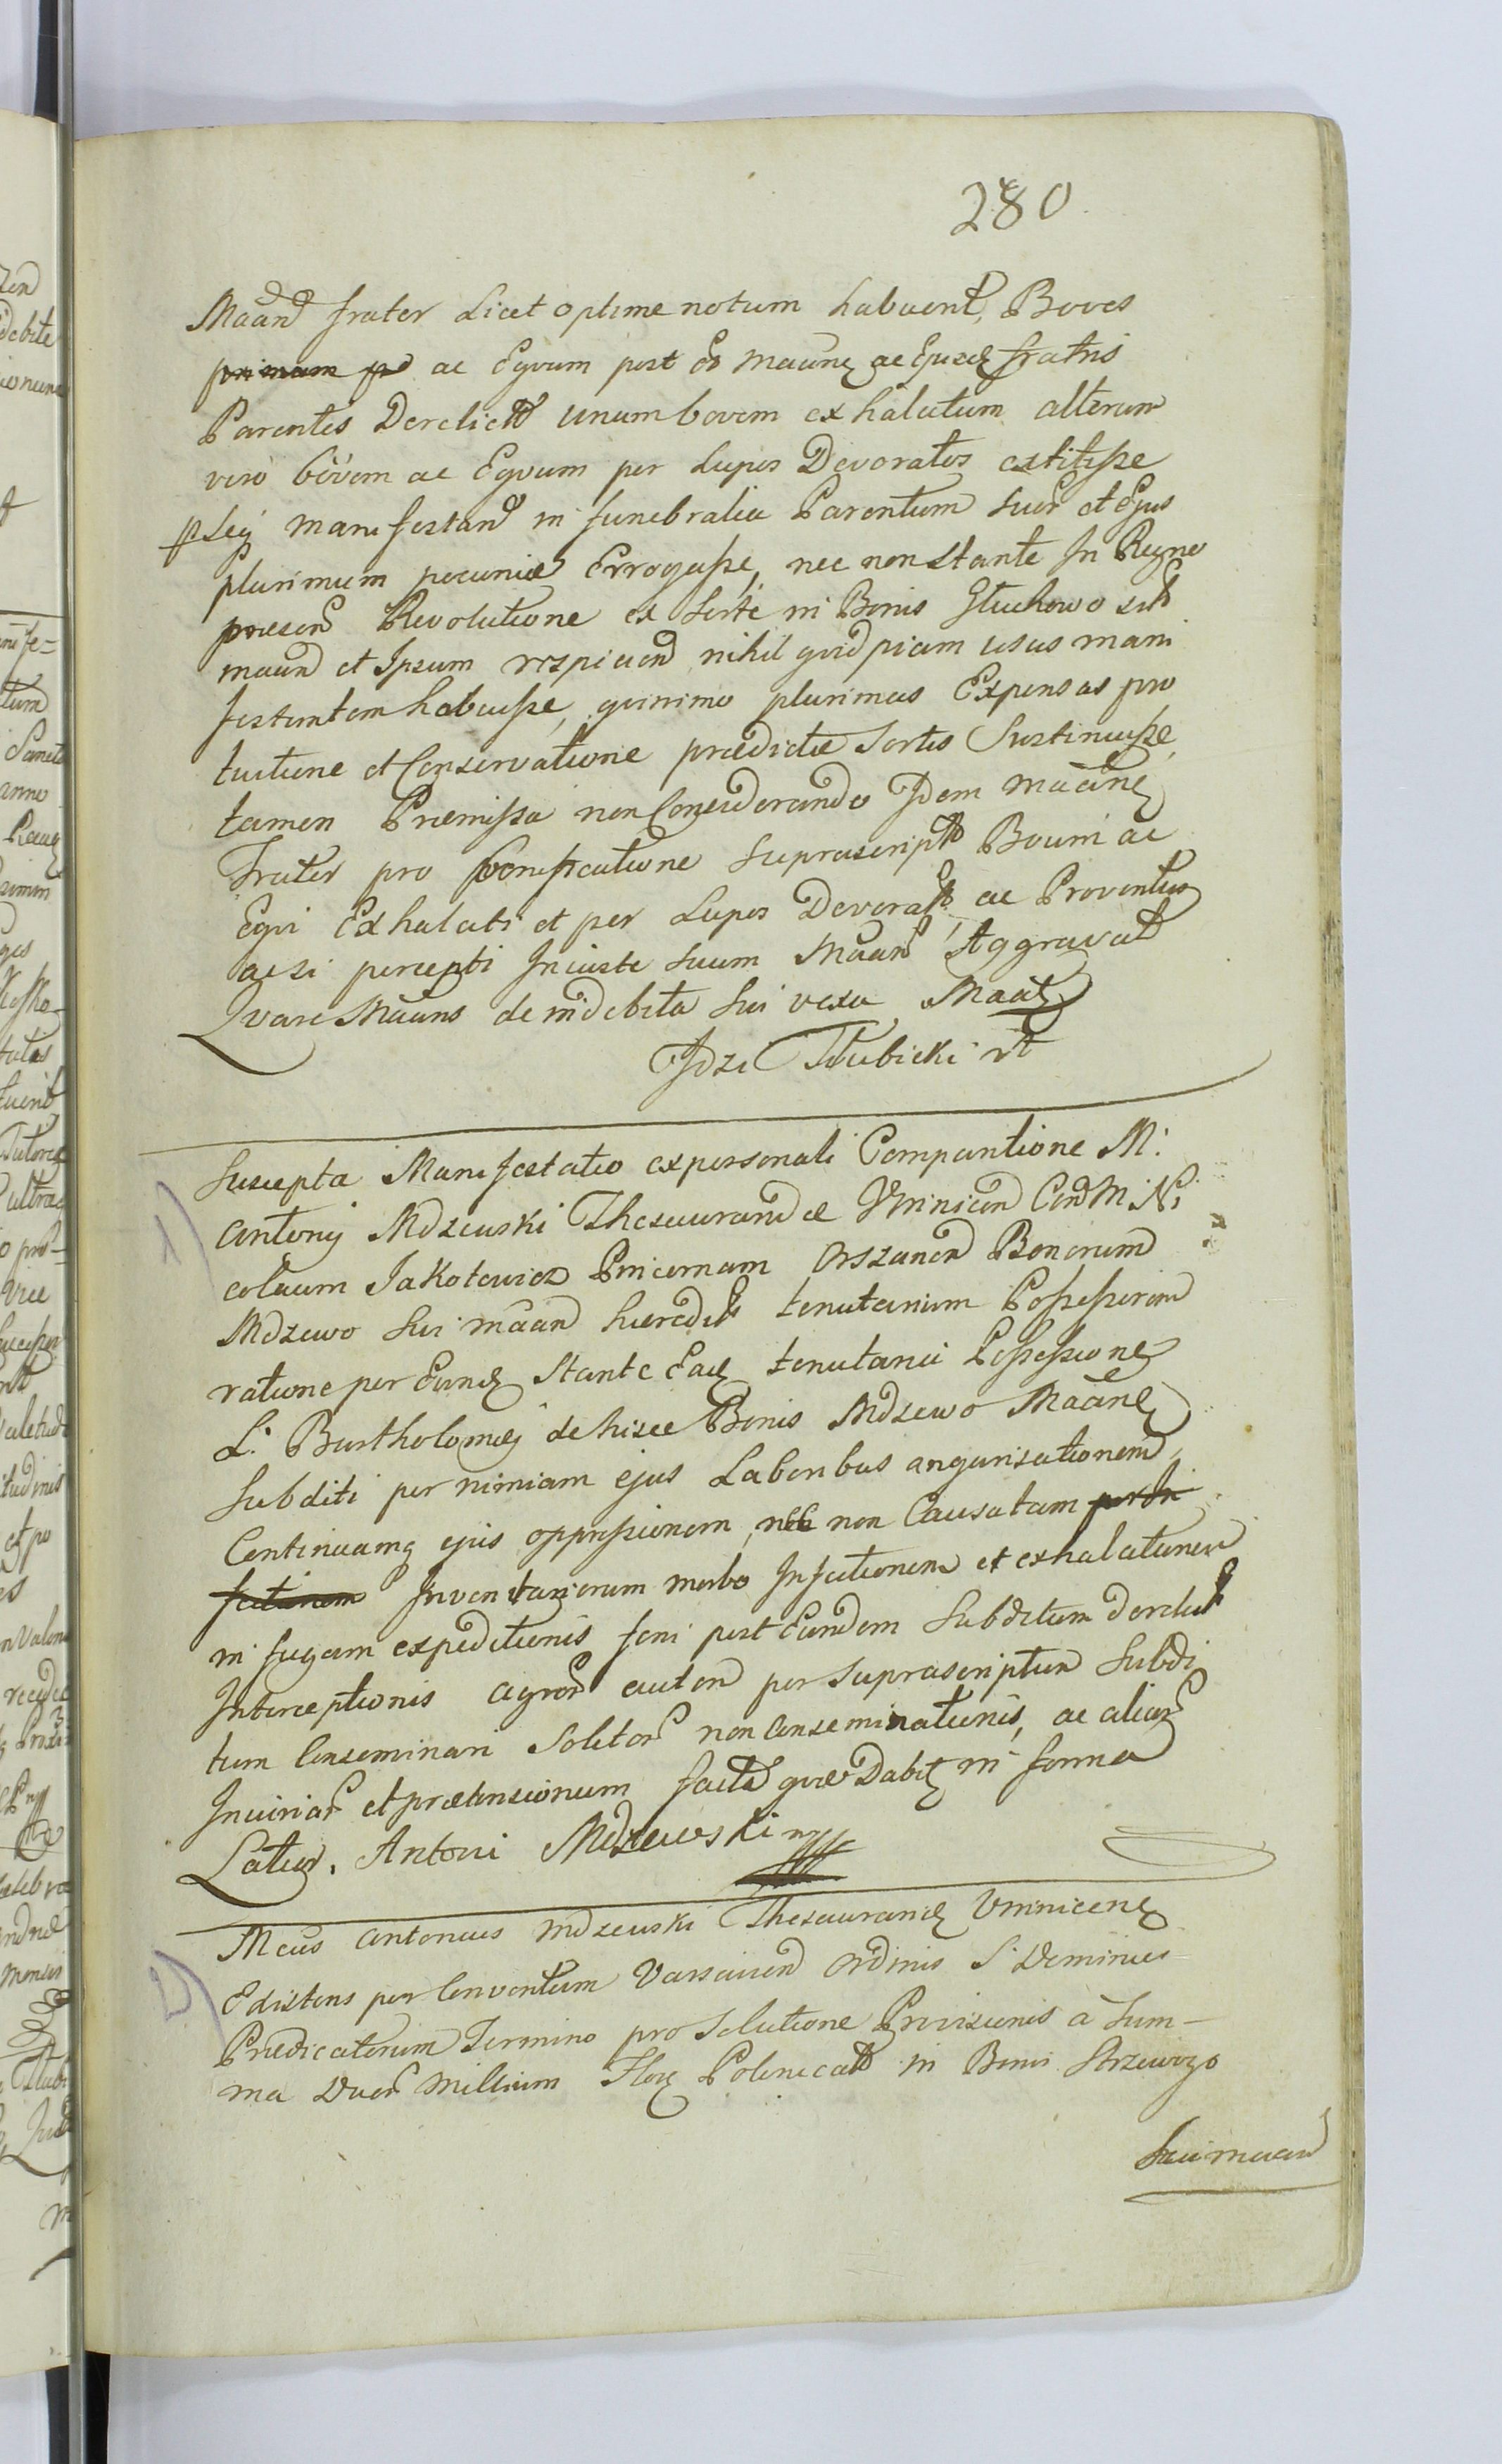 280
Maan frater Licet optime notum habuent, Boves
primam pr ac Equum post eo maane ac Ejusd fratris
Parentes Derelict unum bovem exhalatum alterum
vero bovem ac Equum per Lupos Devoratos extitisse
seq manifestan in funebralia Parentum suor et Ejus
plurimum pecuniæ Errogasse, nec non stante In Regno
præsen Revolutione ex Sorte in Bonis Głuchowo sit
maan et Ipsum respicien nihil quidpiam usus mani
festantem habuisse, quinimo plurimas Expensas pro
tuitione et Conservatione prædictæ Sortis Sustinuisse,
tamen Præmissa non Considerando Idem maane
Frater pro bonificatione suprascript Boum ac
Equi Exhalati et per Lupos Devorat, ac Proventus
acsi percepti Iniuste suum Maan Aggravat
Quare Maans de indebita sui vexa Maat
Idzi Tłubicki rt
Suscepta Manifestatio ex personali Comparitione M:
Antonij Mdzewski Thesaurand Winnicen Con M: Ni
colaum Jakotowicz Pincernam Orszanen Bonorum
Mdzewo sui maan hæredit tenutarium Possessorem
ratione per Eund stante Ead tenutaria Possessione
L: Bartholomej de hisce Bonis Mdzewo Maane
Subditi per nimiam ejus Laboribus angarisationem,
Continuamq ejus oppressionem, nec non Causatam per In
fectionem Inventariorum morbo Infectionem et exhalationem
in fugam expeditionis feni post Eundem Subditum derelict
Interceptionis agror autem per Suprascriptum Subdi
tum Conseminari Solitor non Conseminationis, ac aliar
Iniuriar et prætensionum facta quæ Dabit in forma
Latior. Antoni Mdzewski mp
Mcus Antonius Mdzewski Thesaurand Winnicen
Existens per Conventum Varsavien Ordinis S. Dominici
Prædicatorum Termino pro Solutione Provisionis à Sum-
ma Duor millium Flor Polonicał in Bonis Strzewozo
Sui maan